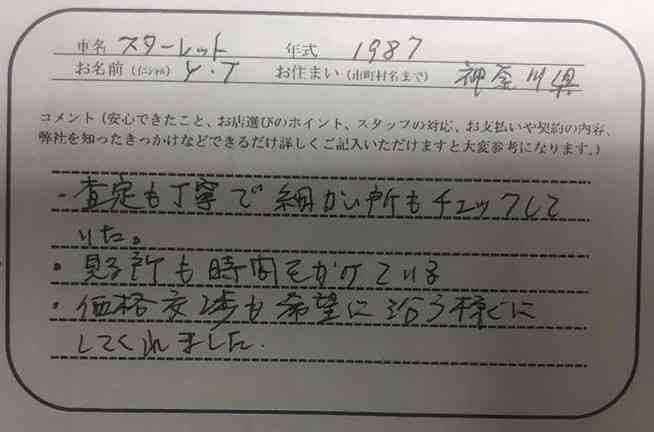 車名 スターレット 年式 1987
お名前(イニシャル) Y・T お住まい(市町村名まで) 神奈川県
コメント(安心できたこと、お店選びのポイント、スタッフの対応、お支払いや契約の内容、
弊社を知ったきっかけなどできるだけ詳しくご記入いただけますと大変参考になります。)
・査定も丁寧で細かい所もチェックして
いた。
・見る所も時間をかけている
・価格交渉も希望に沿う様に
してくれました.